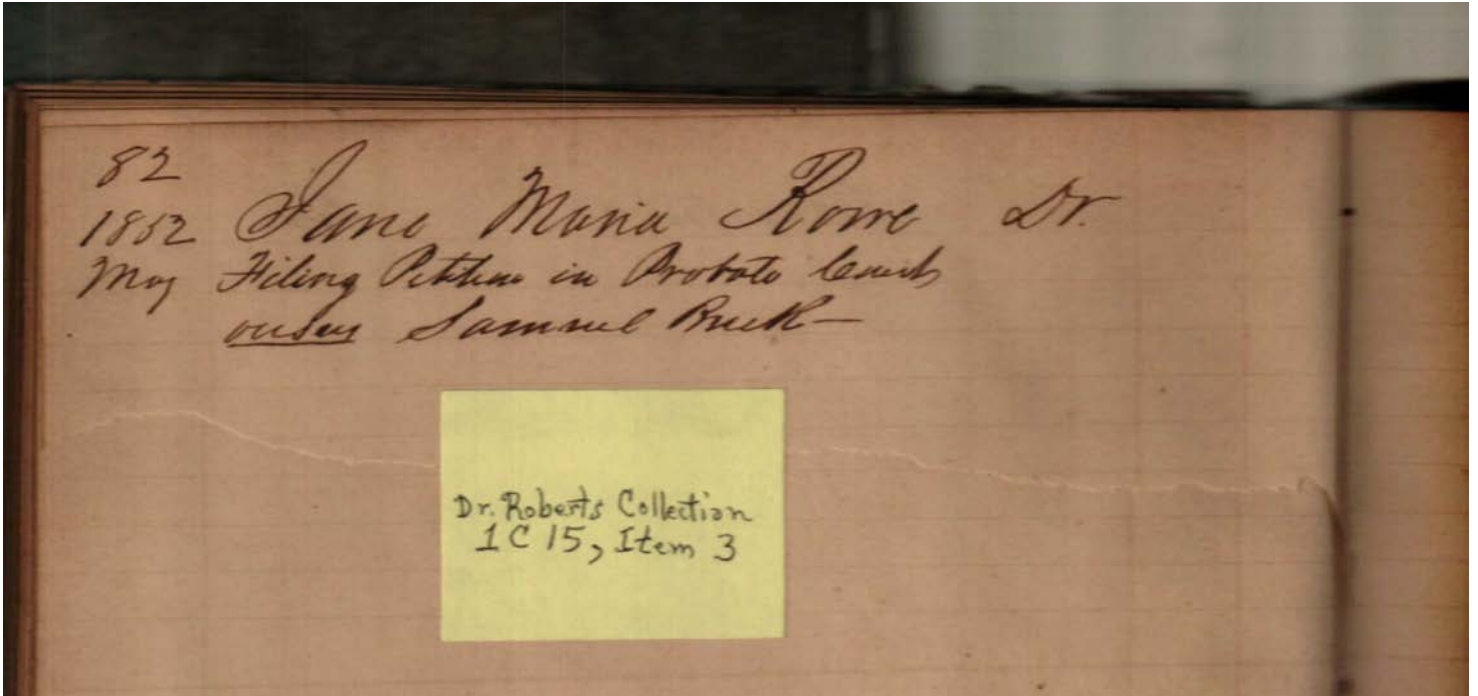 82
1852 Jane Maria Rowe Dr.
May Filing Petition in Probate Court
versus Samuel Buck —
Dr. Roberts Collection
1 C 15, Item 3